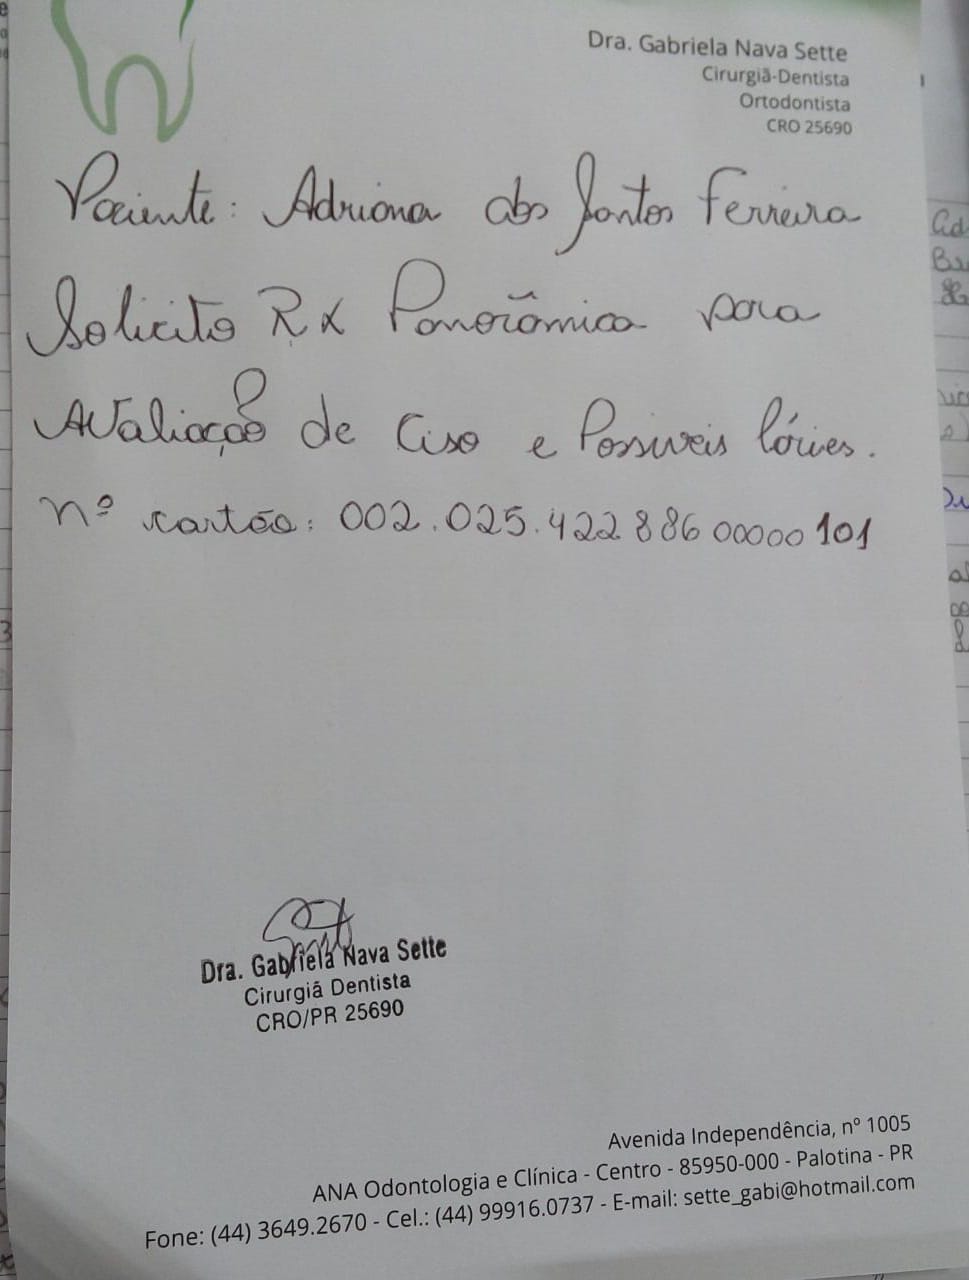 Dra. Gabriela Nava Sette
Cirurgiã-Dentista
Ortodontista
CRO 25690
Paciente: Adriana dos Santos Ferreira
Solicito Rx Panorâmica para
Avaliação de Ciso e Possiveis Cáries.
nº cartão: 002.025.422886 00000 101
Dra. Gabriela Nava Sette
Cirurgiã Dentista
CRO/PR 25690
Avenida Independência, nº 1005
ANA Odontologia e Clínica - Centro - 85950-000 - Palotina - PR
Fone: (44) 3649.2670 - Cel.: (44) 99916.0737 - E-mail: sette_gabi@hotmail.com